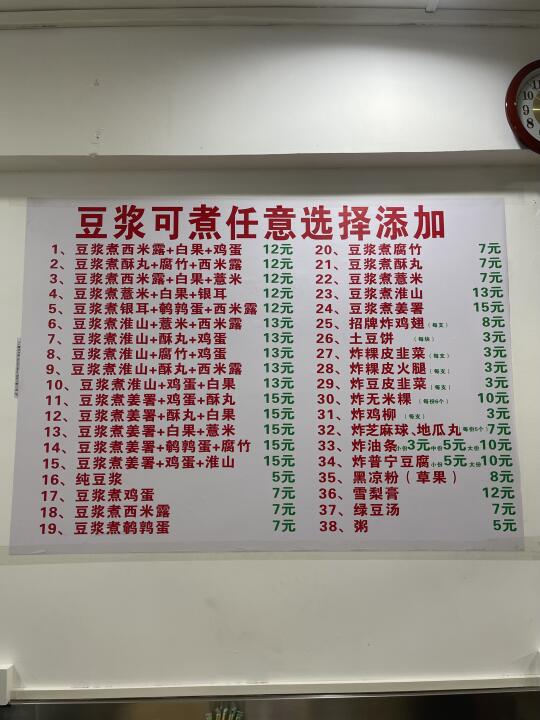 豆浆可煮任意选择添加
1、豆浆煮西米露+白果+鸡蛋 12元
2、豆浆煮酥丸+腐竹+西米露 12元
3、豆浆煮西米露+白果+薏米 12元
4、豆浆煮薏米+白果+银耳 12元
5、豆浆煮银耳+鹌鹑蛋+西米露 12元
6、豆浆煮淮山+薏米+西米露 13元
7、豆浆煮淮山+酥丸+鸡蛋 13元
8、豆浆煮淮山+腐竹+鸡蛋 13元
9、豆浆煮淮山+酥丸+西米露 13元
10、豆浆煮淮山+鸡蛋+白果 13元
11、豆浆煮姜署+鸡蛋+酥丸 15元
12、豆浆煮姜署+酥丸+白果 15元
13、豆浆煮姜署+白果+薏米 15元
14、豆浆煮姜署+鹌鹑蛋+腐竹 15元
15、豆浆煮姜署+鸡蛋+淮山 15元
16、纯豆浆 5元
17、豆浆煮鸡蛋 7元
18、豆浆煮西米露 7元
19、豆浆煮鹌鹑蛋 7元
20、豆浆煮腐竹 7元
21、豆浆煮酥丸 7元
22、豆浆煮薏米 7元
23、豆浆煮淮山 13元
24、豆浆煮姜署 15元
25、招牌炸鸡翅（每支） 8元
26、土豆饼（每块） 3元
27、炸粿皮韭菜（每支） 3元
28、炸粿皮火腿（每支） 3元
29、炸豆皮韭菜（每支） 3元
30、炸无米粿（每份6个） 10元
31、炸鸡柳（每支） 3元
32、炸芝麻球、地瓜丸（每份5个） 7元
33、炸油条小份3元中份5元大份10元
34、炸普宁豆腐小份5元大份10元
35、黑凉粉（草果） 8元
36、雪梨膏 12元
37、绿豆汤 7元
38、粥 5元
10
9
8